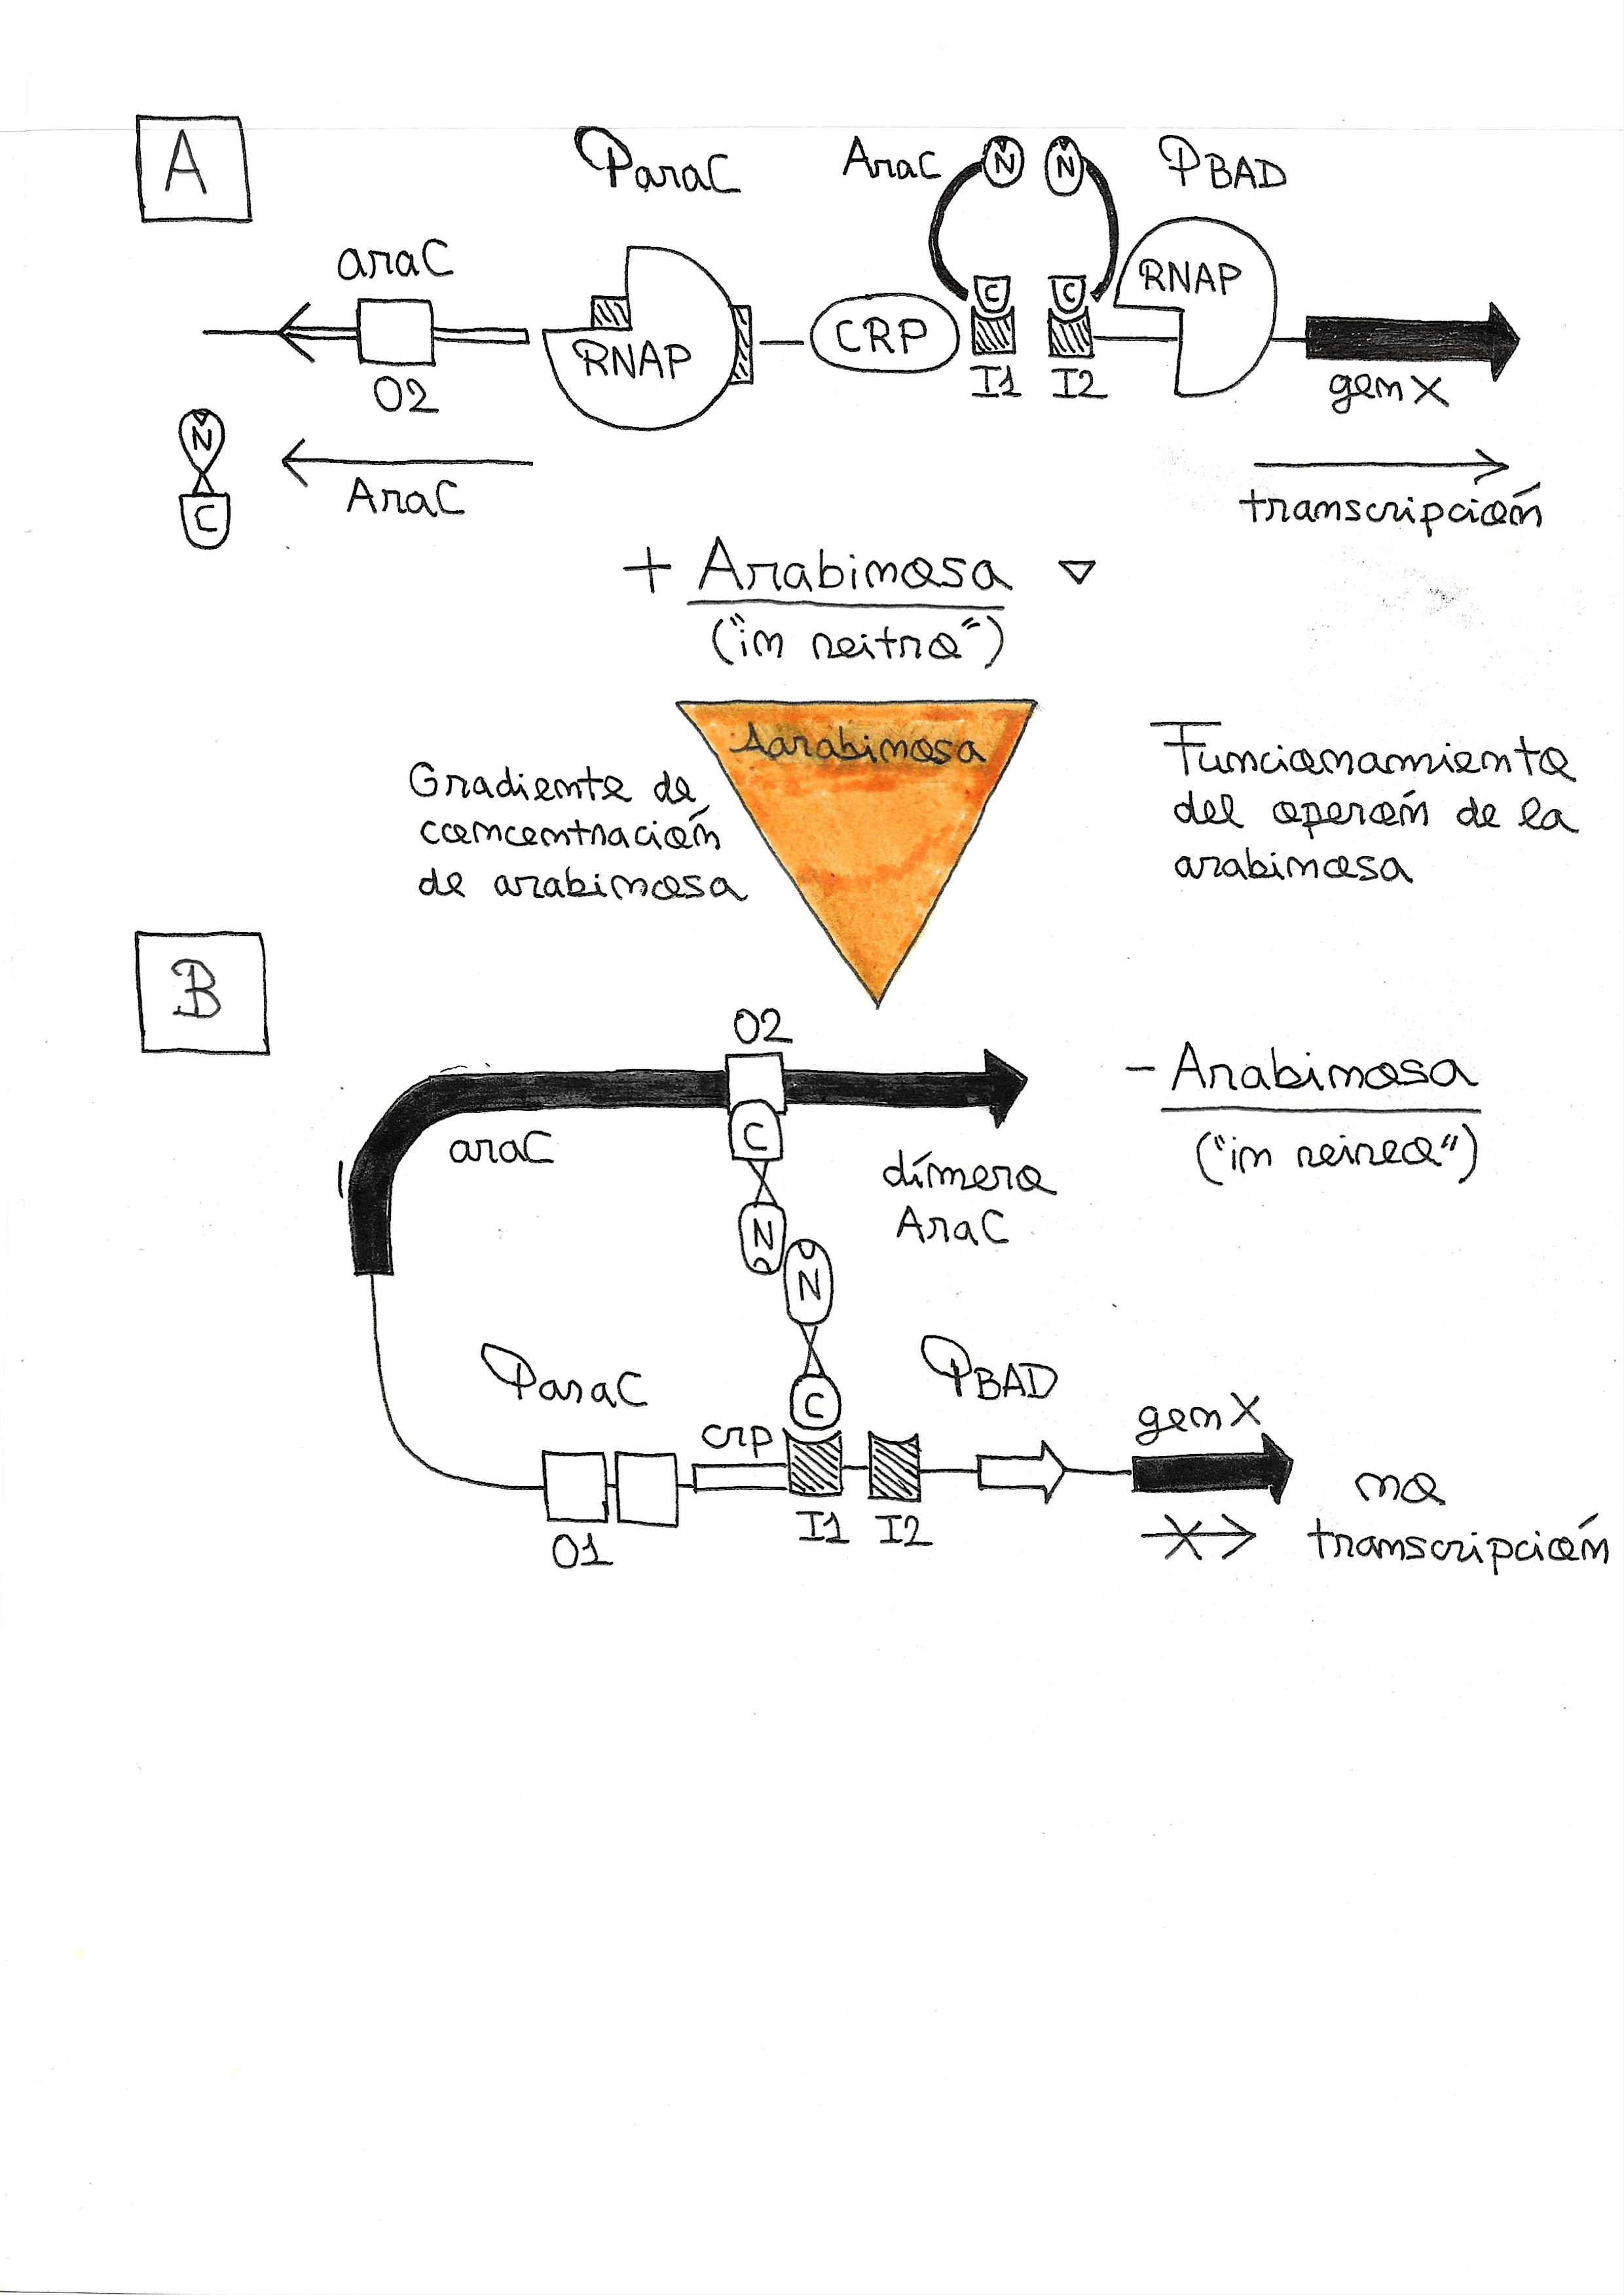 A
ParaC
AraC
N
N
PBAD
araC
RNAP
CRP
C
C
RNAP
O2
I1
I2
gen X
N
C
AraC
transcripción
+ Arabinosa
("in vitro")
Aarabinosa
Gradiente de
concentración
de arabinosa
Funcionamiento
del operón de la
arabinosa
B
O2
araC
C
N
N
C
dímero
AraC
- Arabinosa
("in vivo")
ParaC
PBAD
crp
gen X
O1
I1
I2
no
transcripción